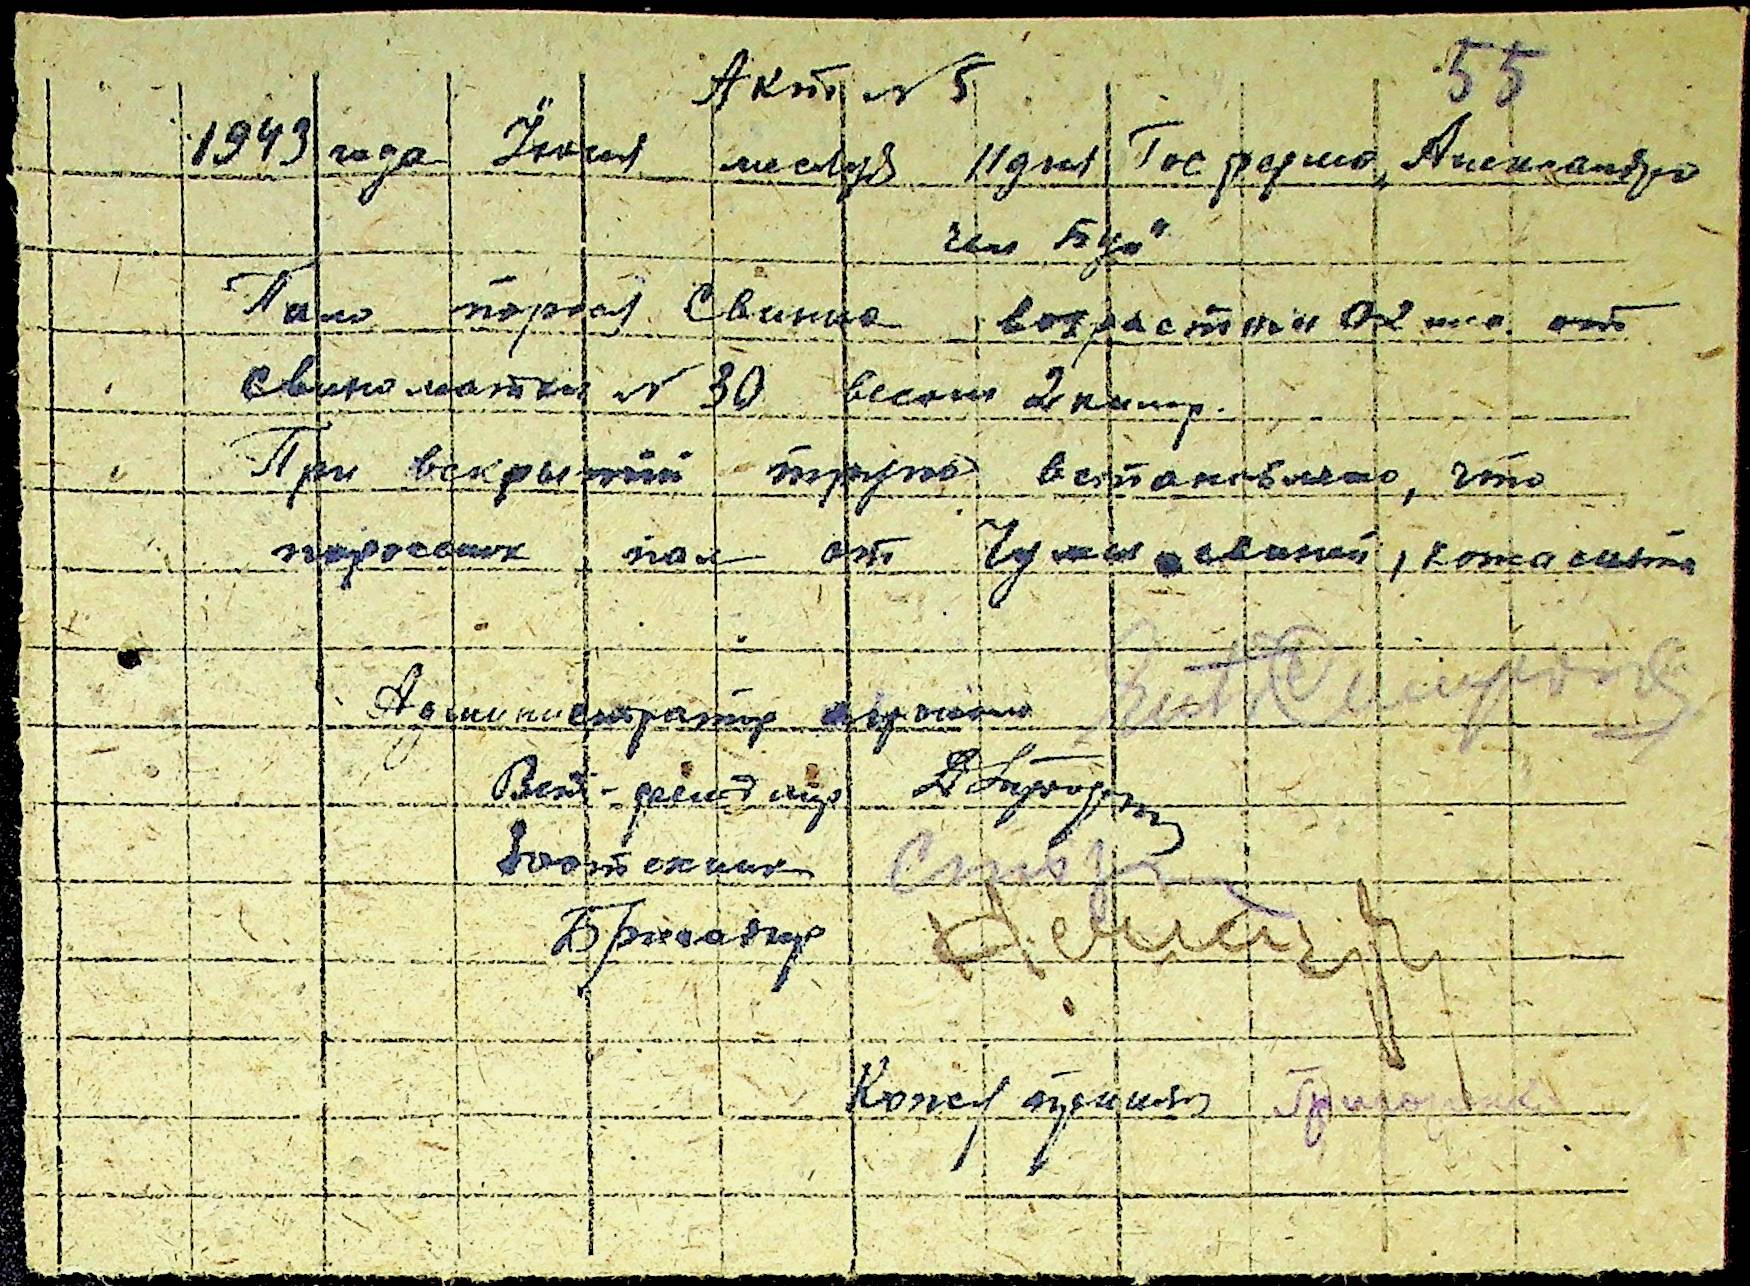 55
Акт № 5
1943 года Июня месяца 11 дня Гос ферма „Александро
чин Буг"
Пало порося Свинка возрастом 02 мес. от
свиноматки № 30 весом 2 килгр.
При вскрытий трупа встановлено, что
поросенок пал от Чумы свиней, кожа снята
Администратор
Вет-фельдшер
Зоотехник
Бригадир
Кожу принял Григоренко